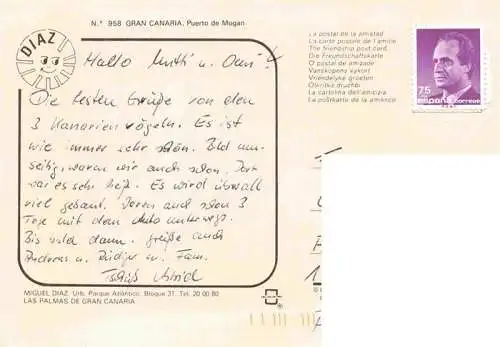 N.º 958 GRAN CANARIA, Puerto de Mogan
DIAZ
Hallo Mutti u. Omi!
Die besten Grüße von den
3 Kanarienvögeln. Es ist
wie immer sehr schön. Bild um-
seitig, waren wir auch schon. Dort
war es sehr heiß. Es wird überall
viel gebaut. Waren auch schon 3
Tage mit dem Auto unterwegs.
Bis bald dann. Grüße auch
Andreas u. Rüdiger u. Fam.
Tschüß Astrid
MIGUEL DIAZ. Urb. Parque Atlántico. Bloque 31. Tel. 20 00 80
LAS PALMAS DE GRAN CANARIA
La postal de la amistad
La carte postale de l'amitie
The friendship post card
Die Freundschaftskarte
O postal de amizade
Vanskapens vykort
Vriendelyke groeten
Okrritka druzhbi
La cartolina dell'amicipa
La poŝtkarto de la amikeco
75
PTA
españa correos